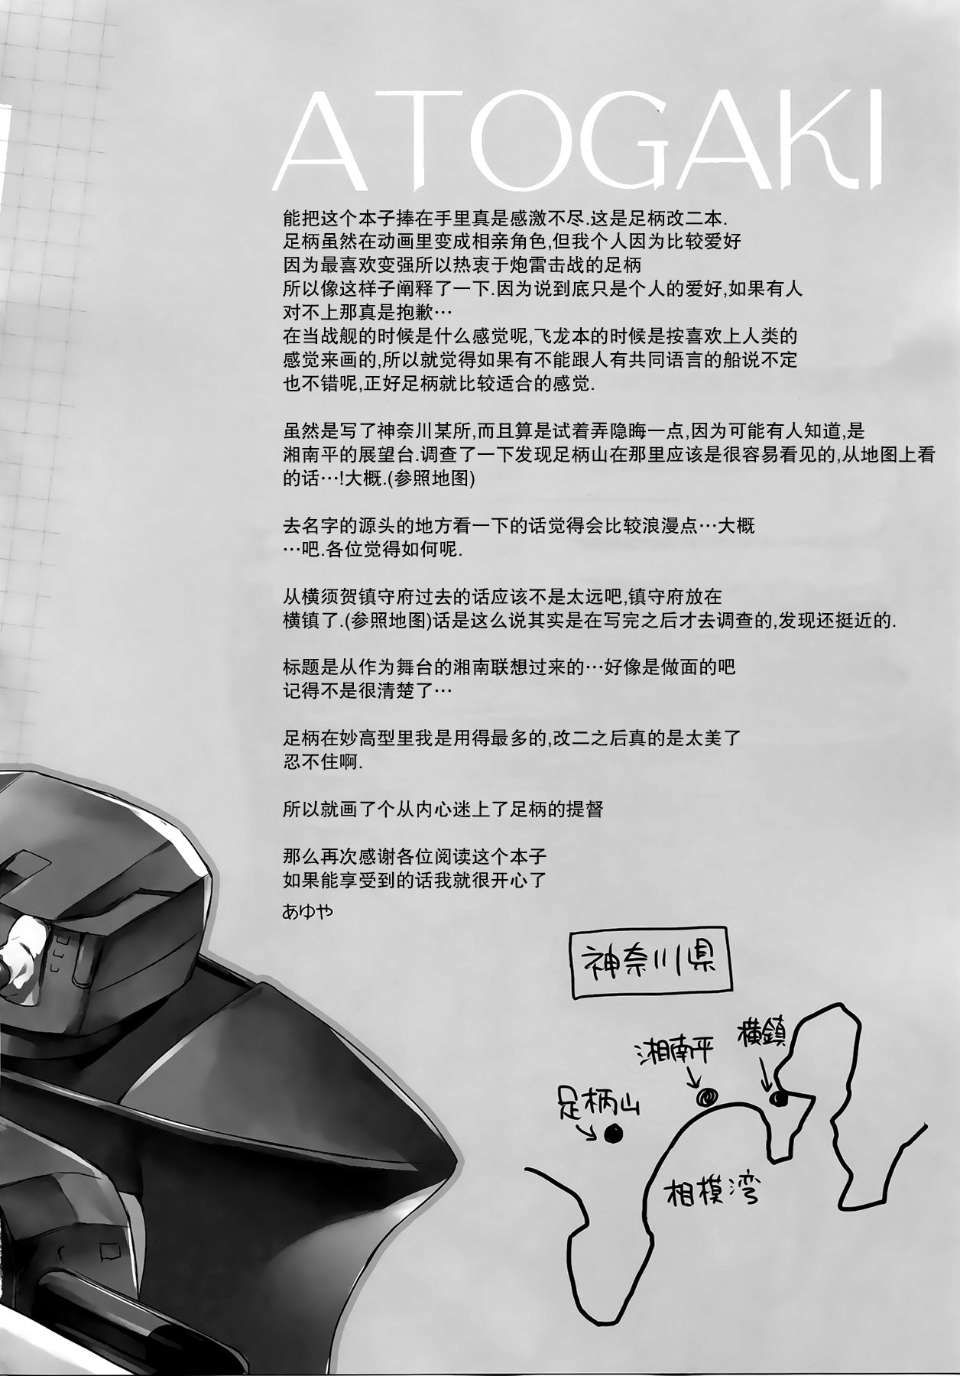 ATOGAKI
能把这个本子捧在手里真是感激不尽.这是足柄改二本.
足柄虽然在动画里变成相亲角色,但我个人因为比较爱好
因为最喜欢变强所以热衷于炮雷击战的足柄
所以像这样子阐释了一下.因为说到底只是个人的爱好,如果有人
对不上那真是抱歉…
在当战舰的时候是什么感觉呢,飞龙本的时候是按喜欢上人类的
感觉来画的,所以就觉得如果有不能跟人有共同语言的船说不定
也不错呢,正好足柄就比较适合的感觉.
虽然是写了神奈川某所,而且算是试着弄隐晦一点,因为可能有人知道,是
湘南平的展望台.调查了一下发现足柄山在那里应该是很容易看见的,从地图上看
的话…!大概.(参照地图)
去名字的源头的地方看一下的话觉得会比较浪漫点…大概
…吧.各位觉得如何呢.
从横须贺镇守府过去的话应该不是太远吧,镇守府放在
横镇了.(参照地图)话是这么说其实是在写完之后才去调查的,发现还挺近的.
标题是从作为舞台的湘南联想过来的…好像是做面的吧
记得不是很清楚了…
足柄在妙高型里我是用得最多的,改二之后真的是太美了
忍不住啊.
所以就画了个从内心迷上了足柄的提督
那么再次感谢各位阅读这个本子
如果能享受到的话我就很开心了
あゆや
神奈川県
横鎮
湘南平
足柄山
相模湾